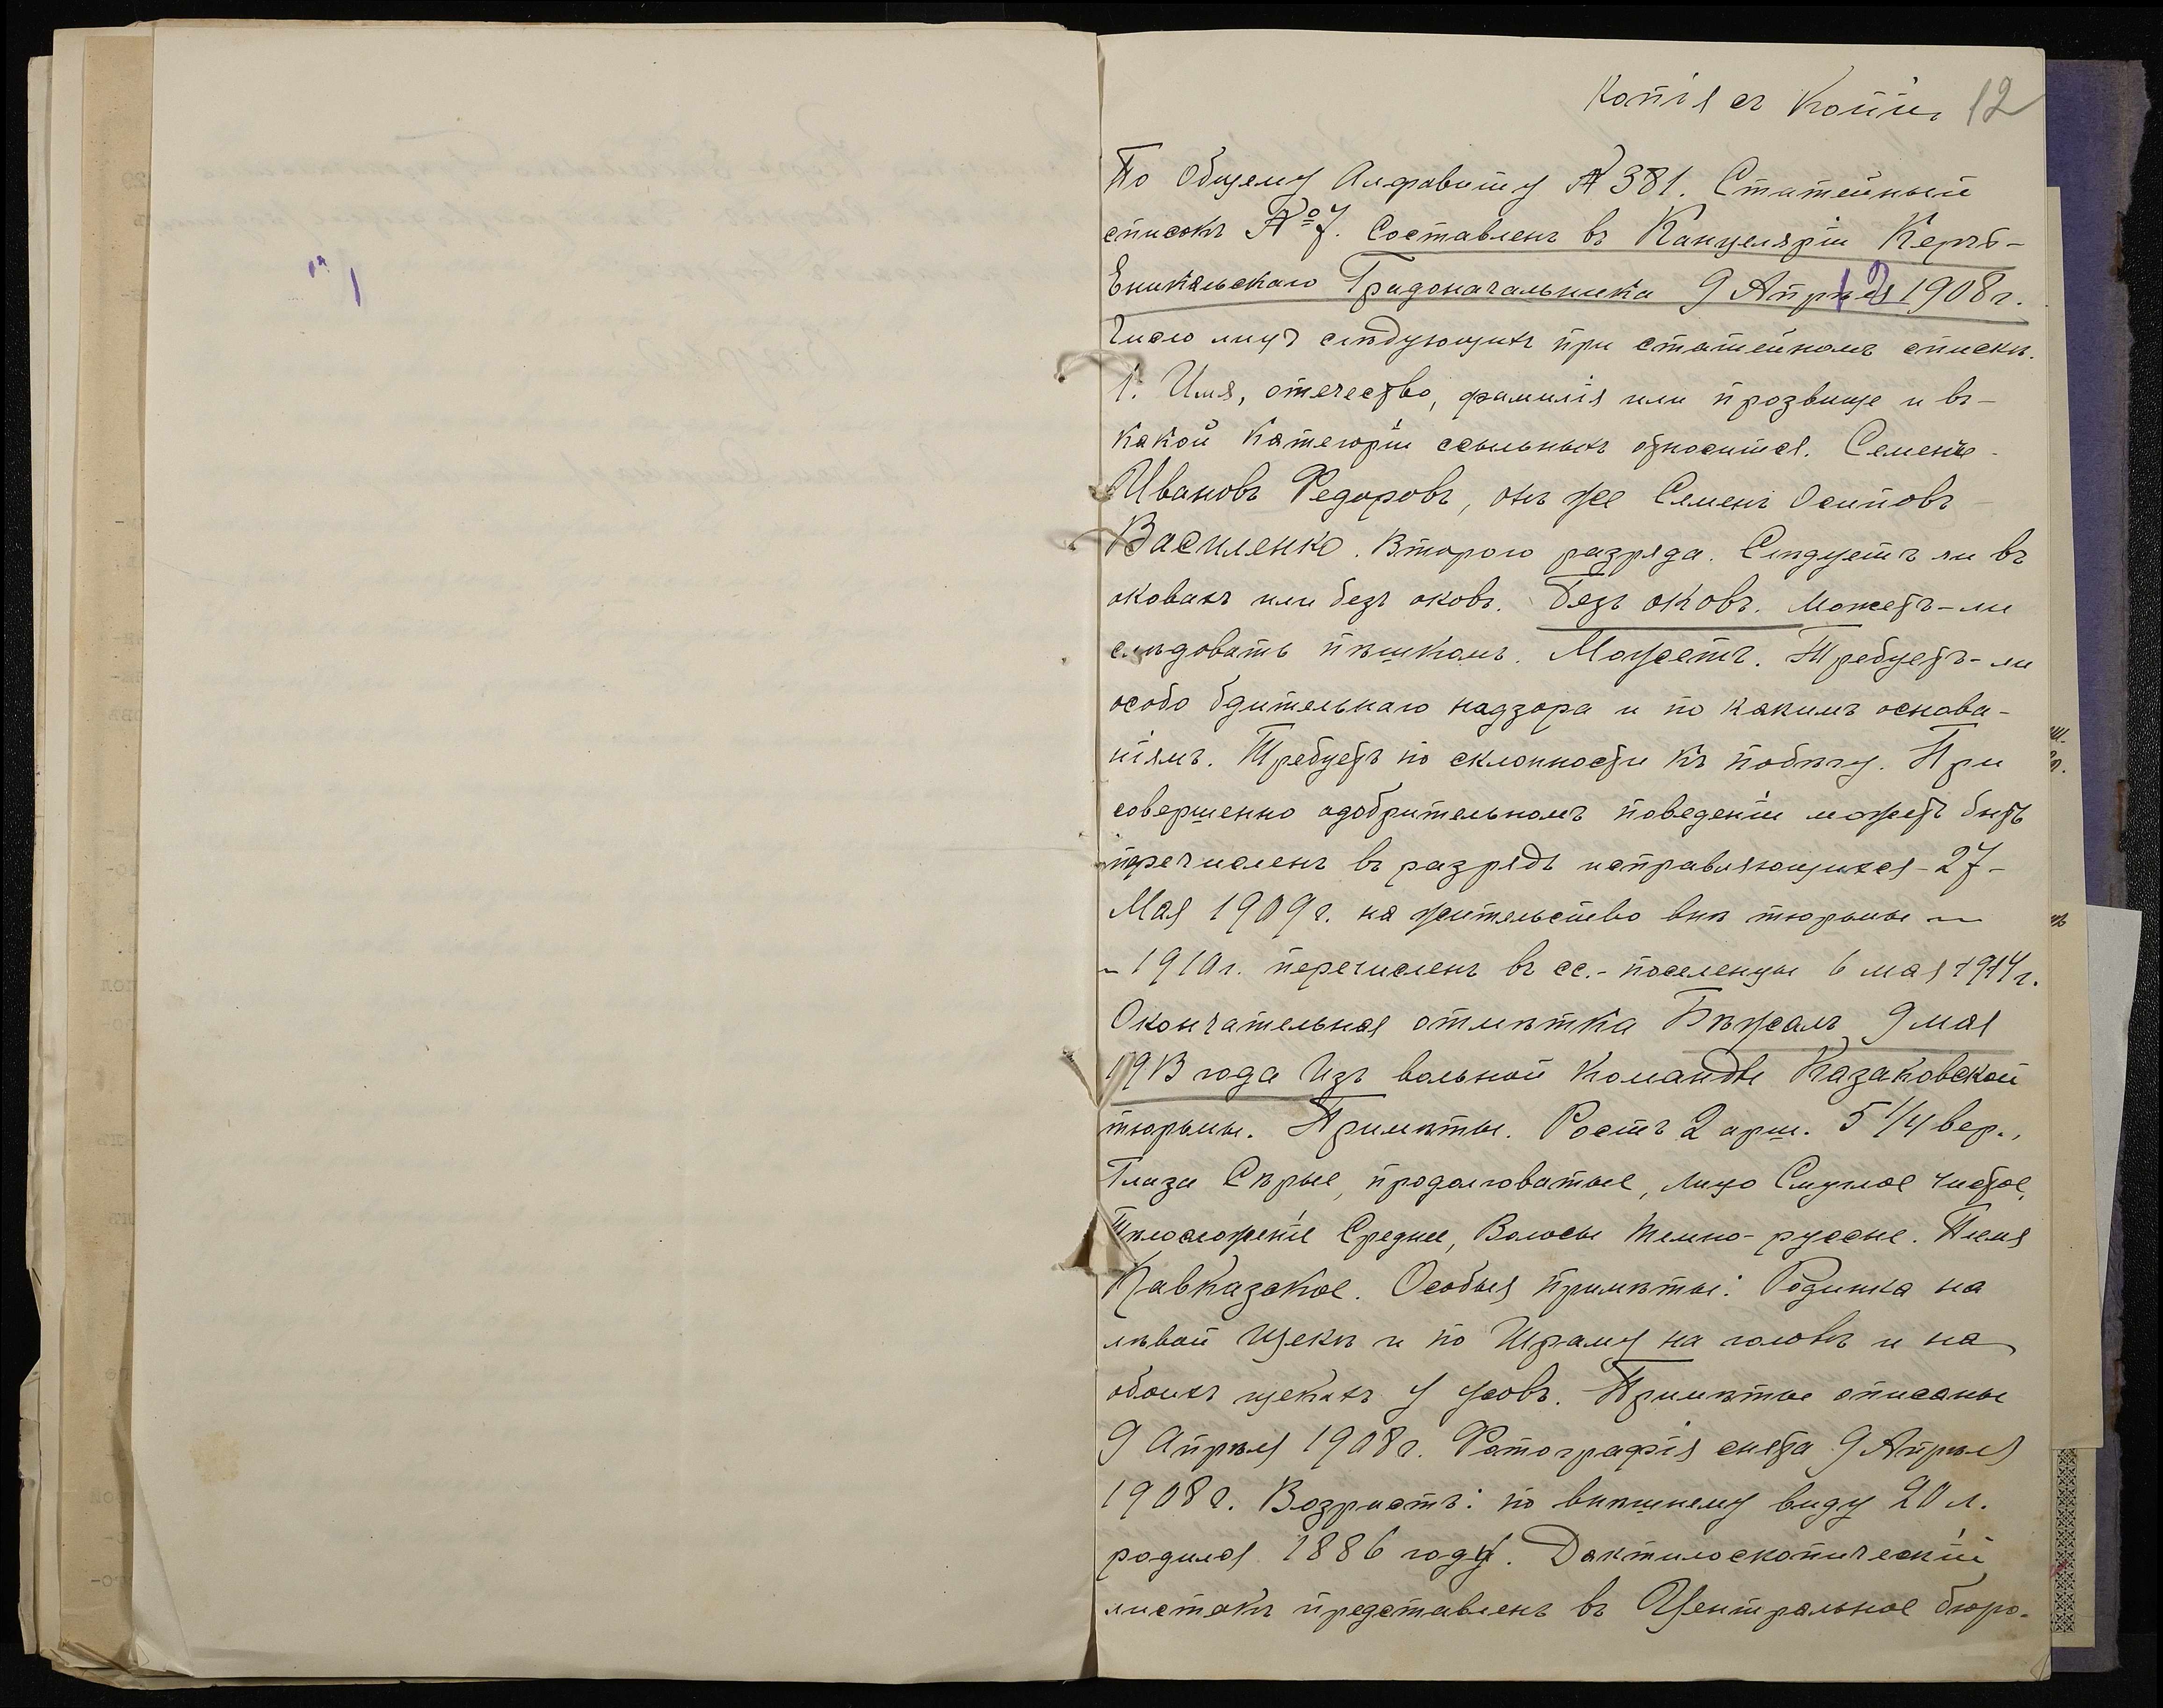 Копія съ копіи. 12
По Общему Алфавиту № 381. Статейный
списокъ № 7. Составленъ въ Канцеляріи Керчь-
Еникальскаго Градоначальника 9 Апрѣля 1908 г.
12
Число лицъ слѣдующихъ при статейномъ спискѣ.
1. Имя, отечество, фамилія или прозвище и въ-
какой категоріи ссыльныхъ относится. Семенъ
Ивановъ Федоровъ, онъ же Семенъ Осиповъ
Василенко. Второго разряда. Слѣдуетъ ли въ
оковахъ или безъ оковъ. Безъ оковъ. Можетъ-ли
слѣдовать пѣшкомъ. Можетъ. Требуетъ-ли
особо бдительнаго надзора и по какимъ основа-
ніямъ. Требуетъ по склонности къ побѣгу. При
совершенно одобрительномъ поведеніи можетъ быть
перечисленъ въ разрядъ исправляющихся - 27 -
Мая 1909 г. на жительство внѣ тюрьмы ~
~ 1910 г. перечисленъ въ сс.- поселенцы 6 мая 1914 г.
Окончательная отмѣтка Бѣжалъ 9 мая
1913 года Изъ вольной команды Казаковской
тюрьмы. Примѣты. Ростъ 2 арш. 5 1/4 вер.,
Глаза Сѣрые, продолговатые, лицо Смуглое чистое,
Тѣлосложеніе Среднее, Волосы темно-русые. Племя
Кавказское. Особыя примѣты: Родинка на
лѣвой щекѣ и по Шраму на головѣ и на
обоихъ щекахъ у усовъ. Примѣты описаны
9 Апрѣля 1908 г. Фотографія снята 9 Апрѣля
1908 г. Возрастъ: по внѣшнему виду 20 л.
родился 1886 году. Дактилоскопическій
листокъ представленъ въ Центральное бюро.